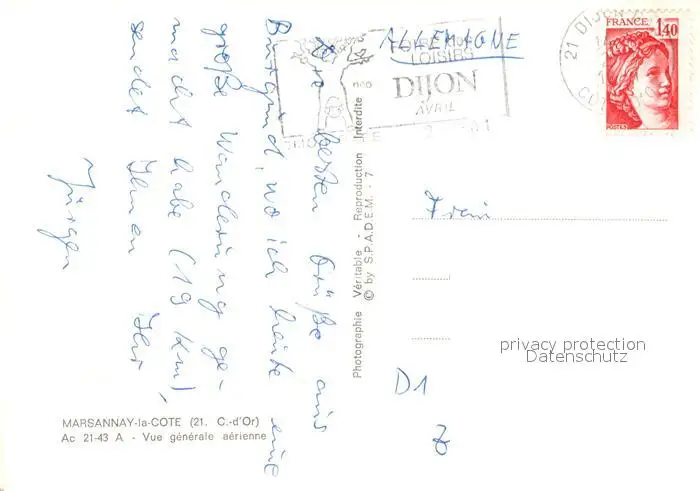 ALLEMAGNE
LOISIRS
DIJON
AVRIL
21 DIJON
FRANCE
1,40
POSTES
besten Grüße aus
Burgund, wo ich heute eine
große Wanderung ge-
macht habe (19 km),
sendet Ihnen Ihr
Jürgen
Photographie Véritable - Reproduction Interdite
© by S.P.A.D.E.M. - 7
Frau
privacy protection
Datenschutz
D1
MARSANNAY-la-COTE (21. C.-d'Or)
Ac 21-43 A - Vue générale aérienne